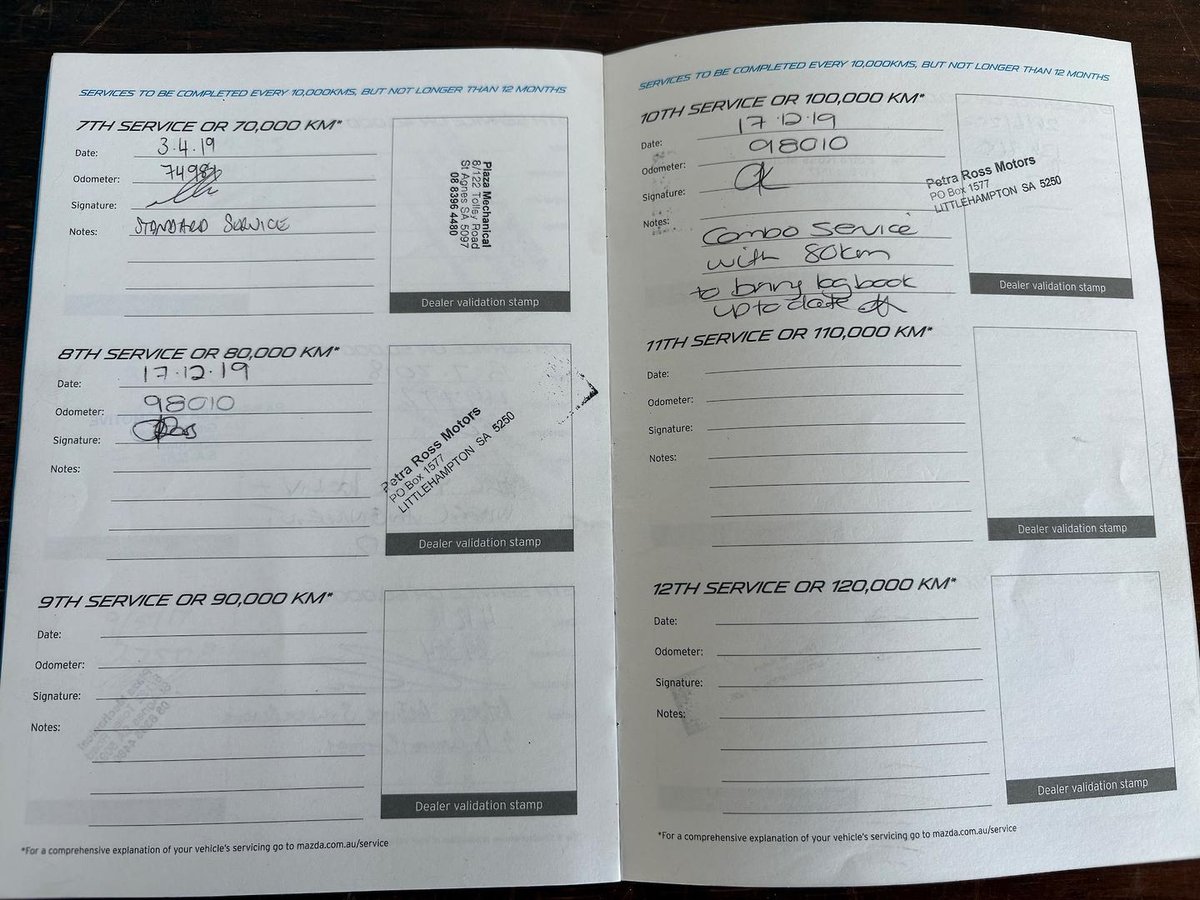 SERVICES TO BE COMPLETED EVERY 10,000KMS, BUT NOT LONGER THAN 12 MONTHS
7TH SERVICE OR 70,000 KM*
Date: 3.4.19
Odometer: 74984
Signature:
Notes: STANDARD SERVICE
Plaza Mechanical
8/122 Tolley Road
St Agnes SA 5097
08 8396 4480
Dealer validation stamp
8TH SERVICE OR 80,000 KM*
Date: 17.12.19
Odometer: 98010
Signature:
Notes:
Petra Ross Motors
PO Box 1577
LITTLEHAMPTON SA 5250
Dealer validation stamp
9TH SERVICE OR 90,000 KM*
Date:
Odometer:
Signature:
Notes:
Dealer validation stamp
*For a comprehensive explanation of your vehicle's servicing go to mazda.com.au/service
SERVICES TO BE COMPLETED EVERY 10,000KMS, BUT NOT LONGER THAN 12 MONTHS
10TH SERVICE OR 100,000 KM*
Date: 17.12.19
Odometer: 98010
Signature:
Notes:
Combo Service
with 80km
to bring logbook
up to date
Petra Ross Motors
PO Box 1577
LITTLEHAMPTON SA 5250
Dealer validation stamp
11TH SERVICE OR 110,000 KM*
Date:
Odometer:
Signature:
Notes:
Dealer validation stamp
12TH SERVICE OR 120,000 KM*
Date:
Odometer:
Signature:
Notes:
Dealer validation stamp
*For a comprehensive explanation of your vehicle's servicing go to mazda.com.au/service